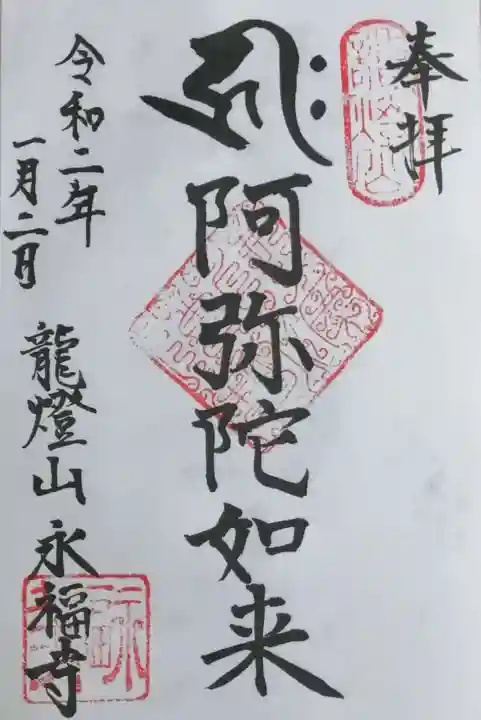 奉拝
阿弥陀如来
令和二年
一月二日
龍燈山永福寺